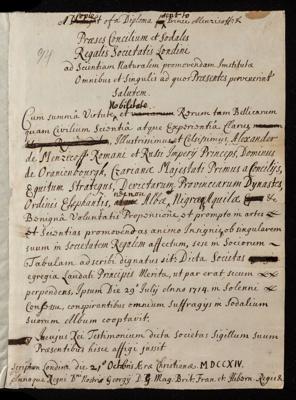 A Copie of a Diploma sent to Prince Menzicoff &
94
Præses Concilium et Sodales
Regalis Societatis Londini
ad Scientiam Naturalem promovendam Instituta
Omnibus et Singulis ad quos Præsentes pervenerint
Salutem.
Nobilitate
Cum summâ Virtute, et Rerum tam Bellicarum
quam Civilium Scientiâ atque Experientiâ Clarus
Illustrissimus et Celsissimus Alexander
de Menzicoff Romani et Russi Imperij Princeps, Dominus
de Oranienbourgh, Czareæ Majestati Primus a Concilijs,
Equitum Strategus, Devictarum Provinciarum Dynastes,
Ordinis Elephantis, Albæ, Nigræ Aquilæ &
Benignâ Voluntatis Propensione, et prompto in artes
et Scientias promovendas animo Insignis, ob singularem
suum in Societatem Regalem affectum, sese in Sociorum
Tabulam adscribi dignatus sit: Dicta Societas
egregia Laudati Principis Merita, ut par erat secum
perpendens, Ipsum Die 29º Julij anno 1714. in Solenni
Consessu, conspirantibus omnium Suffragijs in Sodalium
suorum Album cooptavit.
In cujus Rei Testimonium dicta Societas Sigillum suum
Præsentibus hisce affigi jussit
Scriptum Londini die 21º Octobris Æra Christianæ MDCCXIV.
Annoque Regni Dni Nostri Georgij D. G. Mag. Brit. Fran. et Hibern. Regis &